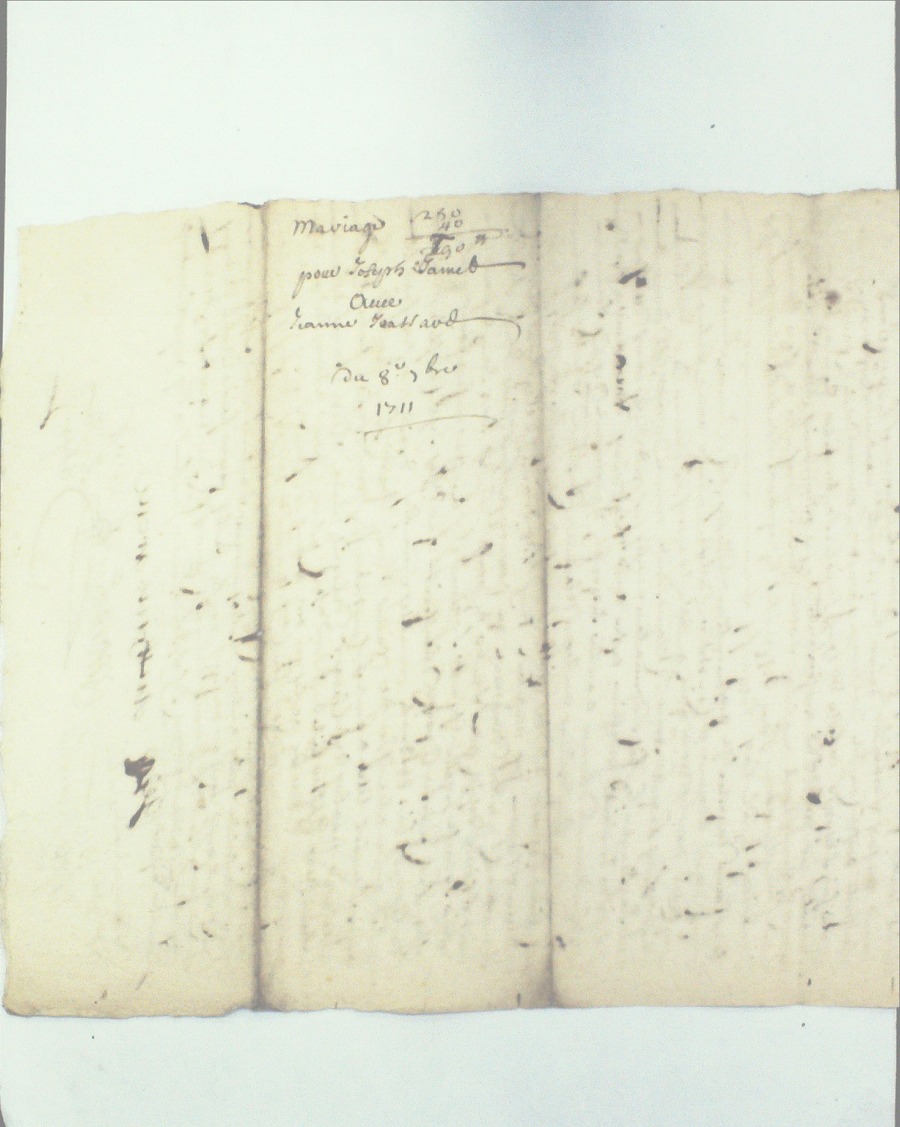 Mariage 250
40
290 ₶
pour Joseph Jamet
Avec
Jeanne
du 8e 7bre
1711